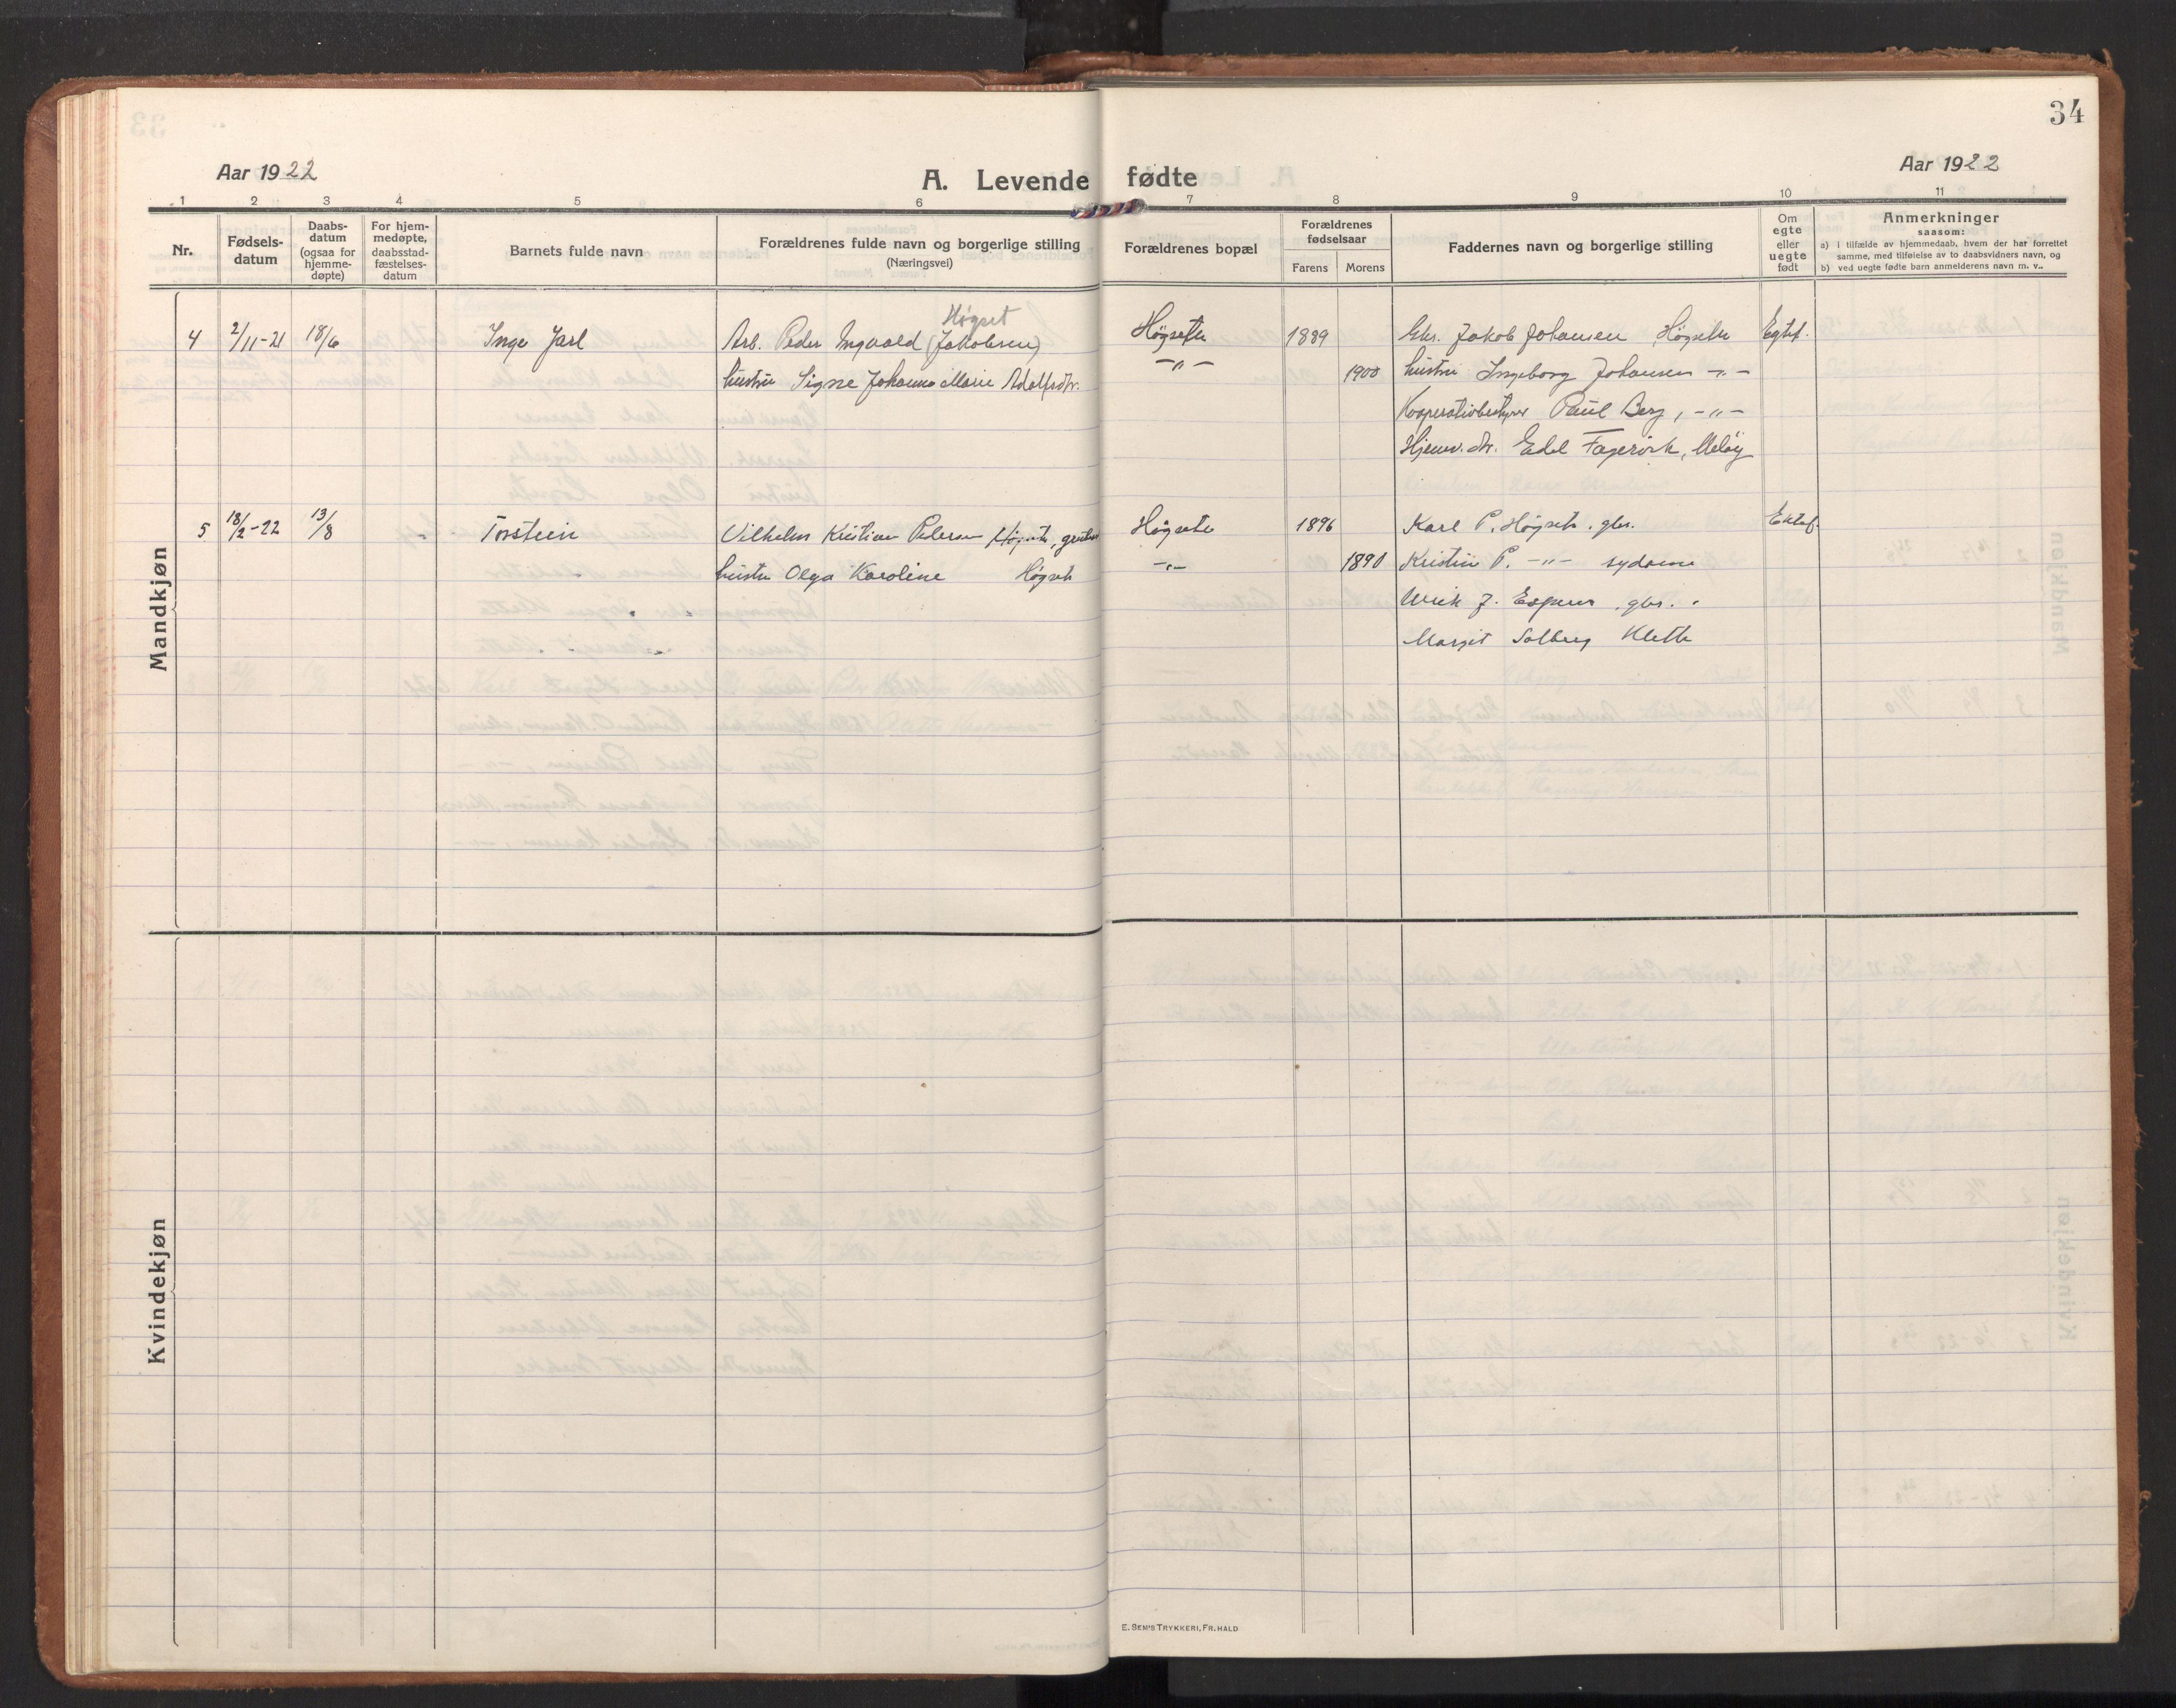 34
Aar 1922
A. Levende fødte
Aar 1922
1 2 3 4 5 6 7 8 9 10 11
Nr.
Fødsels-
datum
Daabs-
datum
(ogsaa for
hjemme-
døpte)
For hjem-
medøpte,
daabsstad-
fæstelses-
datum
Barnets fulde navn
Forældrenes fulde navn og borgerlige stilling
(Næringsvei)
Forældrenes bopæl
Forældrenes
fødselsaar
Farens
Morens
Faddernes navn og borgerlige stilling
Om
egte
eller
uegte
født
Anmerkninger
saasom:
a) i tilfælde av hjemmedaab, hvem der har forrettet
samme, med tilføielse av to daabsvidners navn, og
b) ved uegte fødte barn anmelderens navn m. v..
Høgset
4 2/11-21 18/6 Inge Jarl Arb. Peder Ingvald (Jakobsen) Høgsete 1889 Gbr. Jakob Johansen Høgsete Egtef.
hustru Signe Johanna Marie Adolfsdtr. -"- 1900 hustru Ingeborg Johansen -"-
Kooperativbestyrer Paul Berg, -"-
Hjemv. dtr. Edel Fagervik, Meløy
5 18/2-22 13/8 " Torstein Vilhelm Kristian Pedersen Høgsete, Høgsete 1896 Karl P. Høgset. gbr. Ektef.
hustru Olga Karoline Høgset -"- 1890 Kristin P. -"- sydame
Ulrik J. gbr. "
Margit Solberg Klette
Mandkjøn
Kvindekjøn
E. SEM'S TRYKKERI, FR.HALD